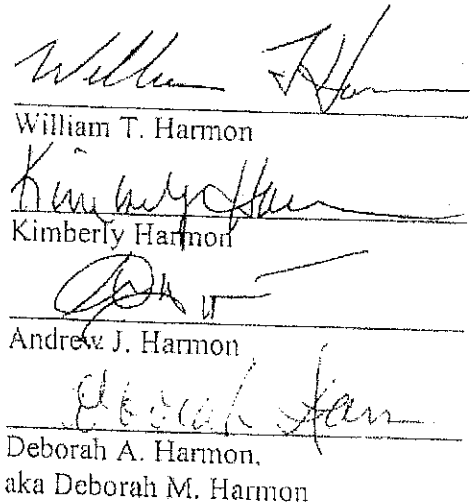 William T Har
William T. Harmon
Kimberly Har
Kimberly Harmon
Andrew J. Harmon
Deborah Harm
Deborah A. Harmon,
aka Deborah M. Harmon